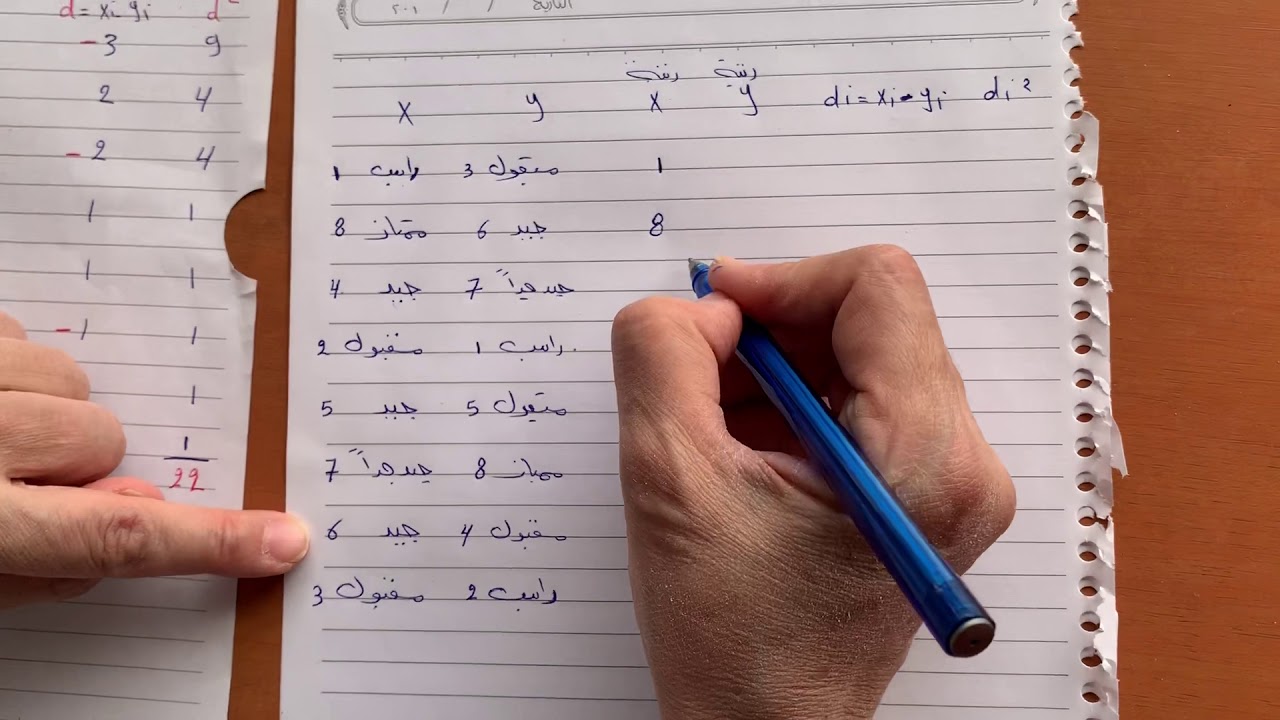 d = xi yi d²
-3 9
2 4
-2 4
1 1
1 1
-1 1
1
1
22
التاريخ / / ٢٠١
رتبة رتبة
X y X y di = xi - yi di²
1 راسب 3 مقبول 1
8 ممتاز 6 جيد 8
4 جيد 7 جيد جداً
2 مقبول 1 راسب
5 جيد 5 مقبول
7 جيد جداً 8 ممتاز
6 جيد 4 مقبول
3 مقبول 2 راسب